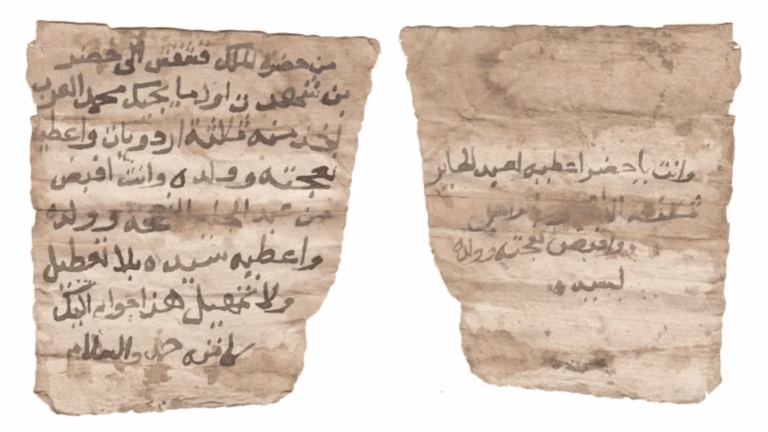 من حضرة الملك قشقش الى خضر
بن شنهدت اول ما يجيك محمد العرب
تخذ منه ثلاثة اردويات واعطيه
نعجته وولده وانت اقبض
من عبد الجابر النعجه وولده
واعطيه سيده بلا تعطيل
ولا تمهيل هذا جوابى اليك
والسلام
وانت يا خضر اعطيه لعبد الجابر
واقبض نعجته وولده
لسيده